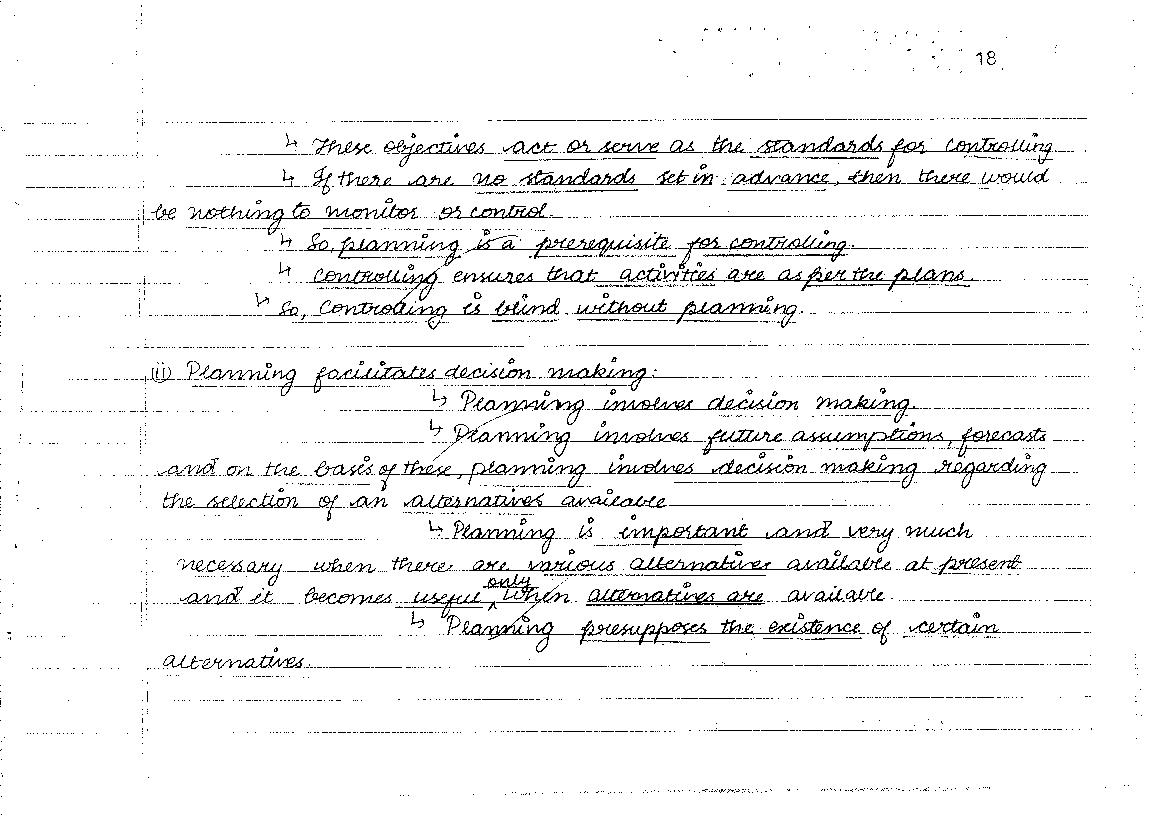 18
↳ These objectives act or serve as the standards for controlling.
↳ If there are no standards set in advance, then there would
be nothing to monitor or control.
↳ So, planning is a prerequisite for controlling.
↳ Controlling ensures that activities are as per the plans.
↳ So, Controlling is blind without planning.
(ii) Planning facilitates decision making:
↳ Planning involves decision making.
↳ Planning involves future assumptions, forecasts
and on the basis of these, planning involves decision making regarding
the selection of an alternatives available
↳ Planning is important and very much
necessary when there are various alternatives available at present
and it becomes useful only when alternatives are available
↳ Planning presupposes the existence of certain
alternatives.